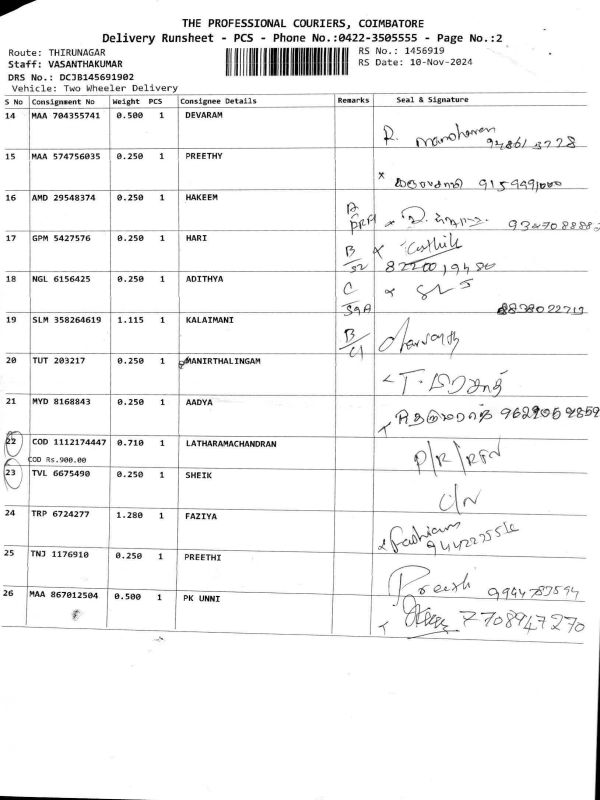 THE PROFESSIONAL COURIERS, COIMBATORE
Delivery Runsheet - PCS - Phone No.:0422-3505555 - Page No.:2
Route: THIRUNAGAR RS No.: 1456919
Staff: VASANTHAKUMAR RS Date: 10-Nov-2024
DRS No.: DCJB145691902
Vehicle: Two Wheeler Delivery
S No Consignment No Weight PCS Consignee Details Remarks Seal & Signature
14 MAA 704355741 0.500 1 DEVARAM
R. Manoharan
15 MAA 574756035 0.250 1 PREETHY
16 AMD 29548374 0.250 1 HAKEEM
17 GPM 5427576 0.250 1 HARI B/S2 Karthik
18 NGL 6156425 0.250 1 ADITHYA C
8838022712
19 SLM 358264619 1.115 1 KALAIMANI B/C1
20 TUT 203217 0.250 1 MANIRTHALINGAM
21 MYD 8168843 0.250 1 AADYA
22 COD 1112174447 0.710 1 LATHARAMACHANDRAN P/R/RTN
COD Rs.900.00
23 TVL 6675490 0.250 1 SHEIK C/N
24 TRP 6724277 1.280 1 FAZIYA
25 TNJ 1176910 0.250 1 PREETHI
Preethi 9944783594
26 MAA 867012504 0.500 1 PK UNNI 7708947270